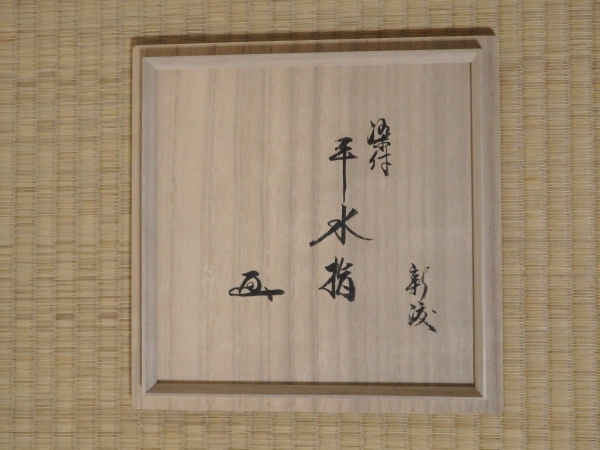 染付
平水指
新渡